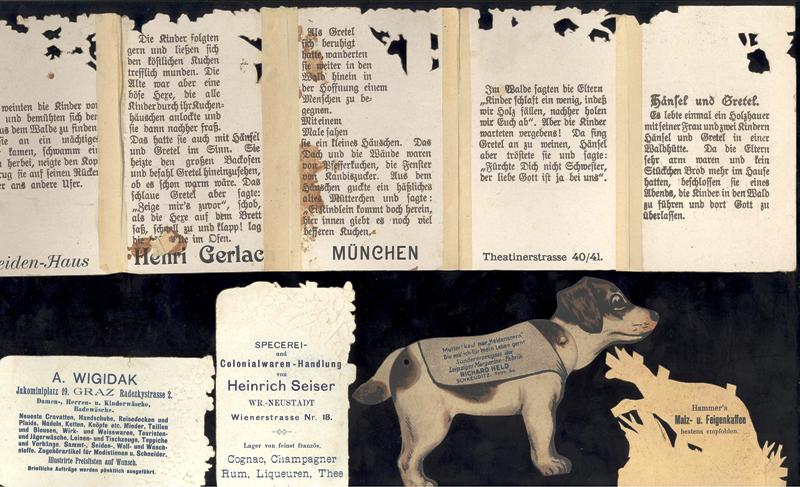 weinten die Kinder vor
und bemühten sich den
us dem Walde zu finden
sie an ein mächtiges
kamen, schwamm ein
herbei, neigte den Kop
rug sie auf seinen Rücke
er ans andere Ufer.
eiden-Haus
Die Kinder folgten
gern und ließen sich
den köstlichen Kuchen
trefflich munden. Die
Alte war aber eine
böse Hexe, die alle
Kinder durch ihr Kuchen-
häuschen anlockte und
sie dann nachher fraß.
Das hatte sie auch mit Hänsel
und Gretel im Sinn. Sie
heizte den großen Backofen
und befahl Gretel hineinzusehen,
ob es schon warm wäre. Das
schlaue Gretel aber sagte:
„Zeige mir's zuvor", schob,
als die Hexe auf dem Brett
saß, schnell zu und klapp! lag
die im Ofen.
Henri Gerlac
Als Gretel
sich beruhigt
hatte, wanderten
sie weiter in den
Wald hinein in
der Hoffnung einem
Menschen zu be-
gegnen.
Mit einem
Male sahen
sie ein kleines Häuschen. Das
Dach und die Wände waren
von Pfefferkuchen, die Fenster
von Kandiszucker. Aus dem
Häuschen guckte ein häßliches
altes Mütterchen und sagte:
„Ei Kindlein kommt doch herein,
hier innen giebt es noch viel
besseren Kuchen.
MÜNCHEN
Im Walde sagten die Eltern
„Kinder schlaft ein wenig, indeß
wir Holz fällen, nachher holen
wir Euch ab". Aber die Kinder
warteten vergebens! Da fing
Gretel an zu weinen, Hänsel
aber tröstete sie und sagte:
„Fürchte Dich nicht Schwester,
der liebe Gott ist ja bei uns".
Theatinerstrasse 40/41.
Hänsel und Gretel.
Es lebte einmal ein Holzhauer
mit seiner Frau und zwei Kindern
Hänsel und Gretel in einer
Waldhütte. Da die Eltern
sehr arm waren und kein
Stückchen Brod mehr im Hause
hatten, beschlossen sie eines
Abends, die Kinder in den Wald
zu führen und dort Gott zu
überlassen.
A. WIGIDAK
Jakominiplatz 19. GRAZ Radetzkystrasse 2.
Damen-, Herren- u. Kinderwäsche,
Badewäsche.
Neueste Cravatten, Handschuhe, Reisedecken und
Plaids, Nadeln, Ketten, Knöpfe etc. Mieder, Taillen
und Blousen, Wirk- und Weisswaaren, Touristen-
und Jägerwäsche, Leinen- und Tischzeuge, Teppiche
und Vorhänge. Sammt-, Seiden-, Woll- und Wasch-
stoffe. Zugehörartikel für Modistinen u. Schneider.
Illustrirte Preislisten auf Wunsch.
Briefliche Aufträge werden pünktlich ausgeführt.
SPECEREI-
und
Colonialwaren-Handlung
von
Heinrich Seiser
WR.-NEUSTADT
Wienerstrasse Nr. 18.
Lager von feinst französ.
Cognac, Champagner
Rum, Liqueuren, Thee
Mutter! kauf nur „Heldenstern",
Die ess' ich für mein Leben gern!
Sondererzeugnis der
Leipziger Margarine-Fabrik
RICHARD HELD
SCHKEUDITZ.
Hammer's
Malz- u. Feigenkaffee
bestens empfohlen.